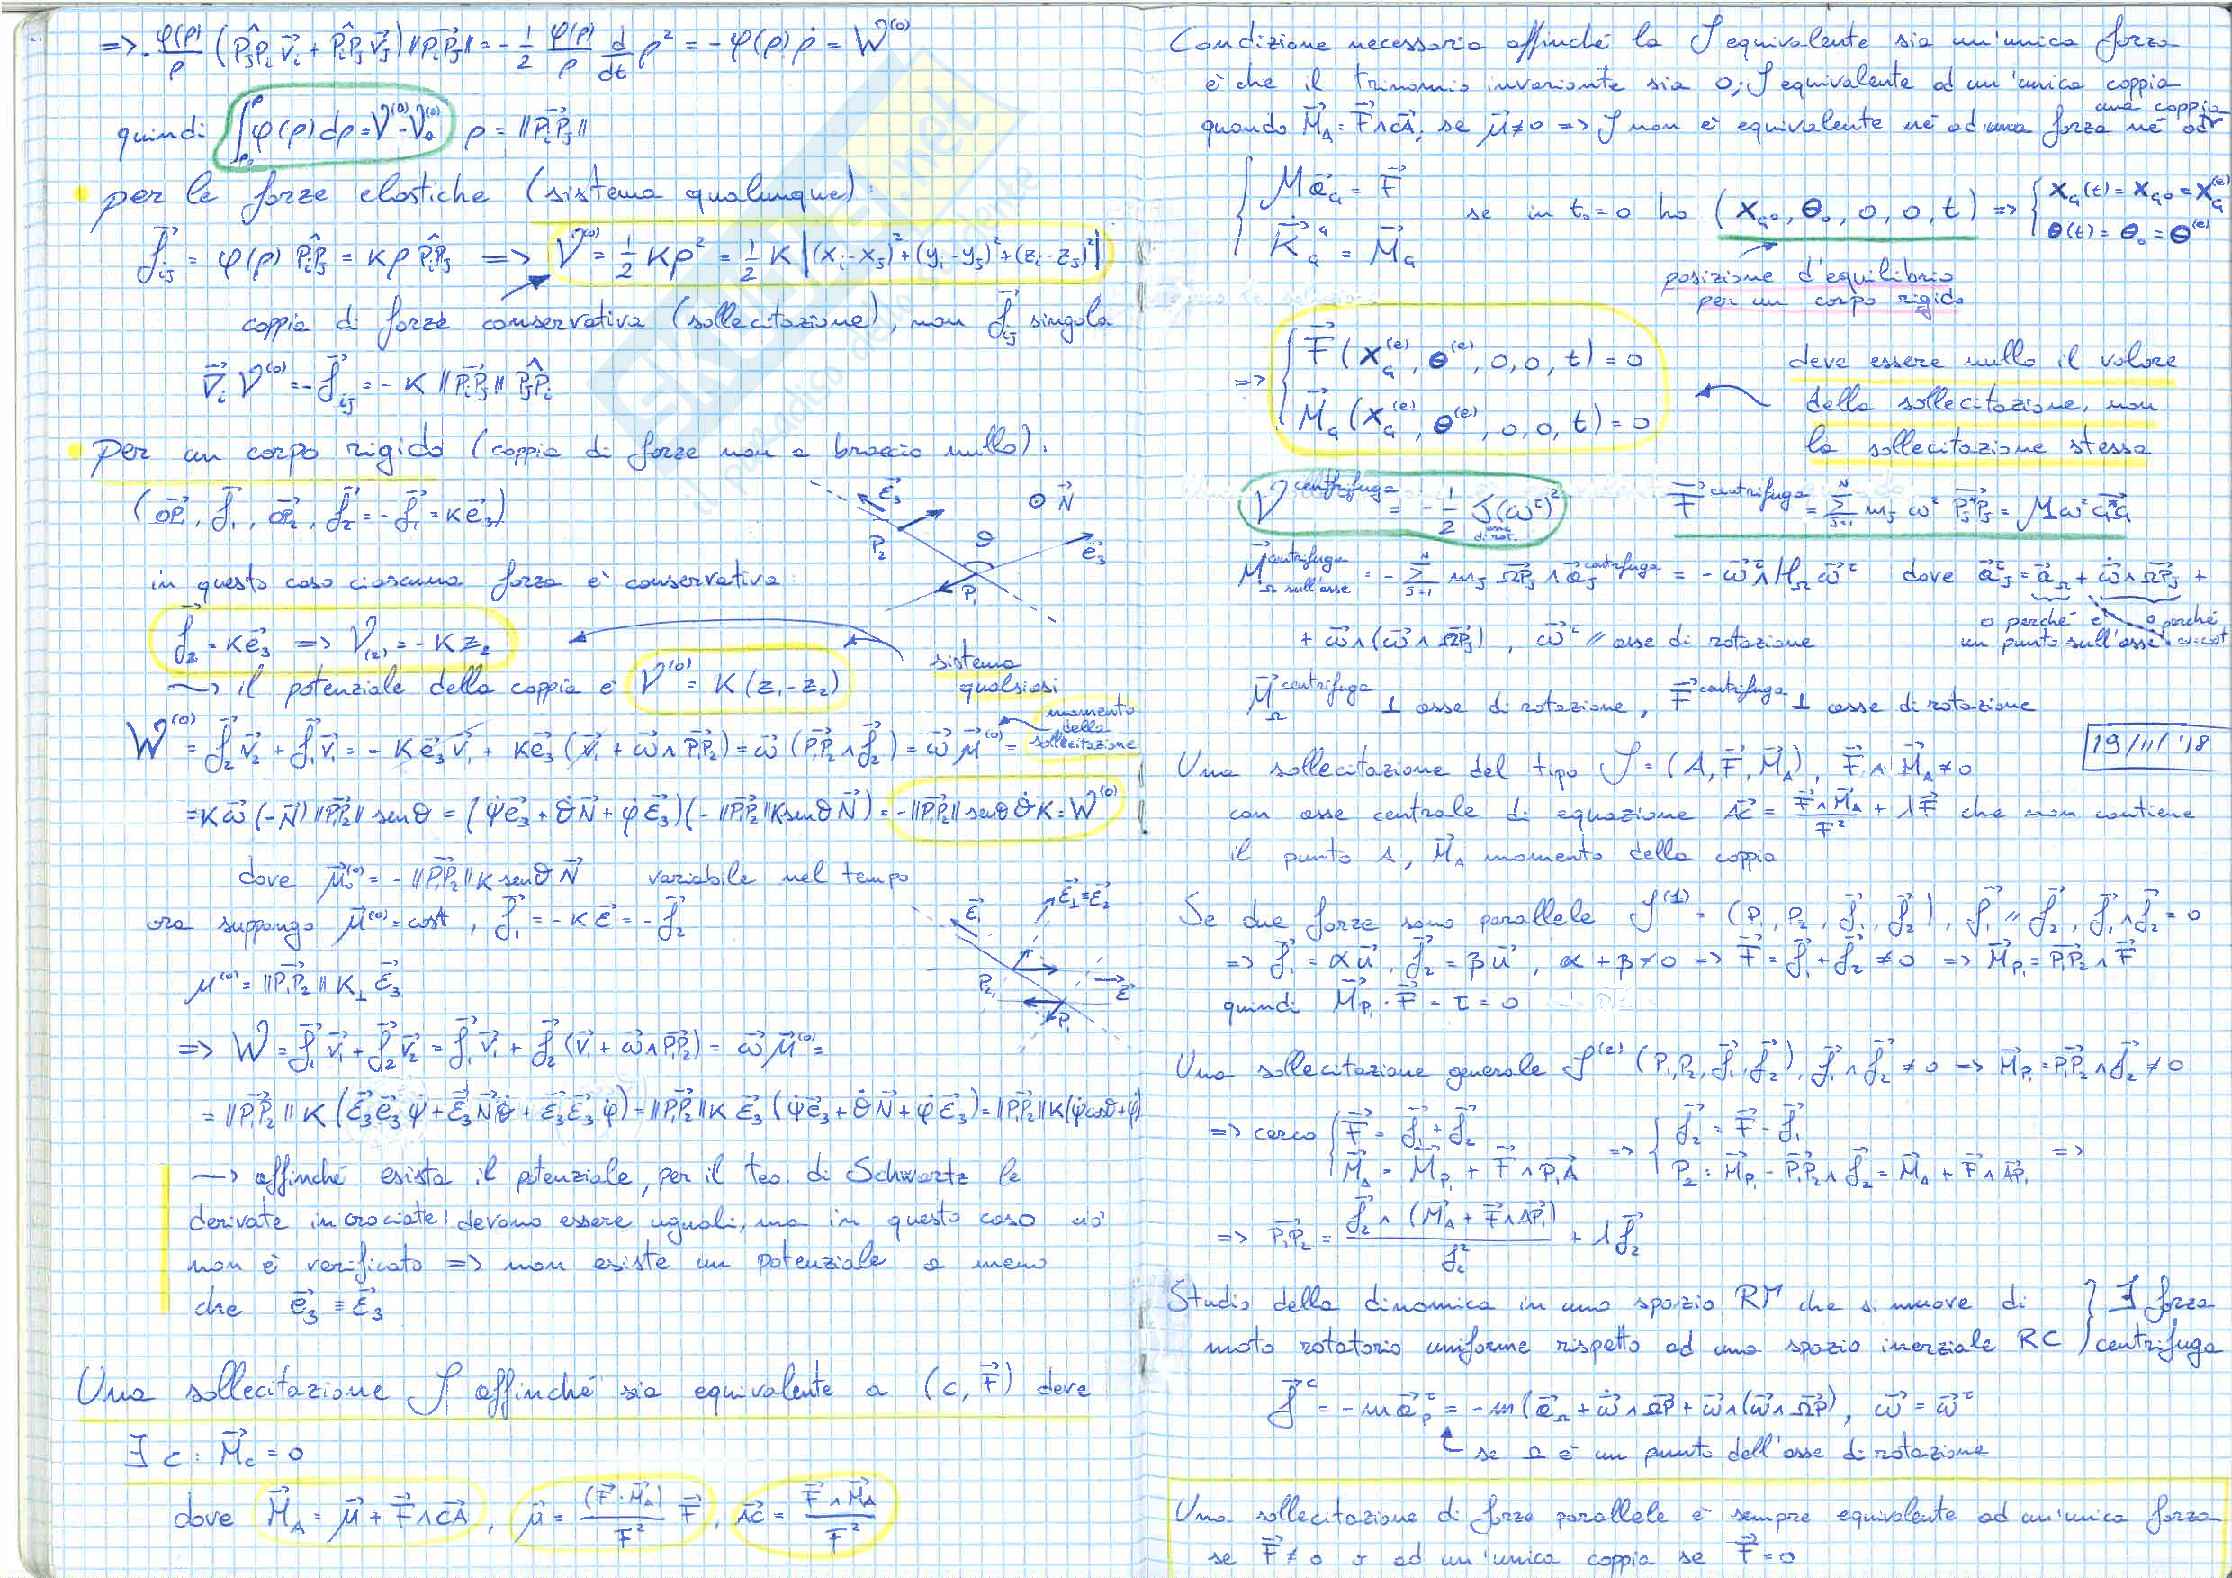 => φ(ρ)/ρ (P̂ⱼPᵢ v⃗ᵢ + P̂ᵢPⱼ v⃗ⱼ) ||PᵢPⱼ|| = - 1/2 φ(ρ)/ρ d/dt ρ² = -φ(ρ) ρ̇ = W⁽⁰⁾
quindi ∫ φ(ρ) dρ = V⁽⁰⁾ - V₀⁽⁰⁾ ρ = ||PᵢPⱼ||
per le forze elastiche (sistema qualunque):
f⃗ᵢⱼ = φ(ρ) P̂ᵢPⱼ = Kρ P̂ᵢPⱼ => V⁽⁰⁾ = 1/2 Kρ² = 1/2 K |(xᵢ-xⱼ)² + (yᵢ-yⱼ)² + (zᵢ-zⱼ)²|
coppia di forze conservativa (sollecitazione), non f⃗ᵢⱼ singola
∇⃗ᵢ V⁽⁰⁾ = -f⃗ᵢⱼ = -K ||PᵢPⱼ|| P̂ⱼPᵢ
Per un corpo rigido (coppia di forze non a braccio nullo):
(OP₁, f⃗₁, OP₂, f⃗₂ = -f⃗₁ = Ke⃗₃)
ε⃗₃ N⃗ P₂ θ e⃗₃ P₁
in questo caso ciascuna forza è conservativa
f⃗₂ = Ke⃗₃ => V₍₂₎ = -Kz₂
sistema qualsiasi
~> il potenziale della coppia è V⁽⁰⁾ = K(z₁-z₂)
W⁽⁰⁾ = f⃗₂ v⃗₂ + f⃗₁ v⃗₁ = -Ke⃗₃ v⃗₁ + Ke⃗₃ (v⃗₁ + ω⃗∧P₁P₂) = ω⃗ (P₁P₂∧f⃗₂) = ω⃗ μ⃗⁽⁰⁾ =
momento della sollecitazione
= Kω⃗(-N⃗) ||P₁P₂|| senθ = (ψ̇e⃗₃ + θ̇N⃗ + φ̇ε⃗₃)(-||P₁P₂|| K senθ N⃗) = -||P₁P₂|| senθ θ̇ K = W⁽⁰⁾
dove μ⃗⁽⁰⁾ = -||P₁P₂|| K senθ N⃗ variabile nel tempo
ora suppongo μ⃗⁽⁰⁾ = cost, f⃗₁ = -Kε⃗ = -f⃗₂
μ⁽⁰⁾ = ||P₁P₂|| K⊥ ε⃗₃
ε⃗₁ ε⃗⊥=ε⃗₂ P₂ ε⃗ P₁
=> W = f⃗₁ v⃗₁ + f⃗₂ v⃗₂ = f⃗₁ v⃗₁ + f⃗₂ (v⃗₁ + ω⃗∧P₁P₂) = ω⃗ μ⃗⁽⁰⁾ =
= ||P₁P₂|| K (ε⃗₃e⃗₃ψ̇ + ε⃗₃N⃗θ̇ + ε⃗₃ε⃗₃φ̇) = ||P₁P₂|| K ε⃗₃ (ψ̇e⃗₃ + θ̇N⃗ + φ̇ε⃗₃) = ||P₁P₂|| K(ψ̇cosθ+φ̇)
~> affinché esista il potenziale, per il teo. di Schwartz le
derivate incrociate devono essere uguali, ma in questo caso ciò
non è verificato => non esiste un potenziale a meno
che e⃗₃ ≡ ε⃗₃
Una sollecitazione S affinché sia equivalente a (C, F⃗) deve
∃ C: M⃗c = 0
dove M⃗_A = μ⃗ + F⃗∧CA, μ⃗ = (F⃗·M⃗_A)/F² F⃗, AC = F⃗∧M⃗_A/F²
Condizione necessaria affinché la S equivalente sia un'unica forza
è che il trinomio invariante sia 0; S equivalente ad un'unica coppia
quando M⃗_A = F⃗∧CA, se μ⃗≠0 => S non è equivalente né ad una forza né ad una coppia
{ Ma⃗_G = F⃗
K̇⃗_G = M⃗_G
se in t₀=0 ho (x_G0, θ₀, 0, 0, t) => { x_G(t) = x_G0 = x_G⁽ᵉ⁾
θ(t) = θ₀ = θ⁽ᵉ⁾
posizione d'equilibrio
per un corpo rigido
=> { F⃗(x_G⁽ᵉ⁾, θ⁽ᵉ⁾, 0, 0, t) = 0
M⃗_G(x_G⁽ᵉ⁾, θ⁽ᵉ⁾, 0, 0, t) = 0
deve essere nullo il valore
della sollecitazione, non
la sollecitazione stessa
V centrifuga = -1/2 J asse di rot. (ω^τ)² F⃗ centrifuga = Σ mⱼ ω² P*ⱼPⱼ = Mω² G*G
M⃗ centrifuga Ω sull'asse = -Σ mⱼ ΩPⱼ∧a⃗ⱼ centrifuga = -ω⃗^τ∧H_Ω ω⃗^τ dove a⃗ⱼ^τ = a⃗_Ω + ω̇⃗∧ΩPⱼ +
0 perché è un punto sull'asse 0 perché ω=cost
+ ω⃗∧(ω⃗∧ΩPⱼ), ω⃗^τ // asse di rotazione
M⃗_Ω centrifuga ⊥ asse di rotazione, F⃗ centrifuga ⊥ asse di rotazione
19/11/'18
Una sollecitazione del tipo S = (A, F⃗, M⃗_A), F⃗∧M⃗_A≠0
con asse centrale di equazione AC = F⃗∧M⃗_A/F² + λF⃗ che non contiene
il punto A, M⃗_A momento della coppia
Se due forze sono parallele S⁽¹⁾ = (P₁, P₂, f⃗₁, f⃗₂), f⃗₁ // f⃗₂, f⃗₁∧f⃗₂=0
=> f⃗₁ = αu⃗, f⃗₂ = βu⃗, α+β≠0 -> F⃗ = f⃗₁+f⃗₂ ≠0 => M⃗_P₁ = P₁P₂∧F⃗
quindi M⃗_P₁·F⃗ = τ = 0
Una sollecitazione generale S⁽²⁾ (P₁, P₂, f⃗₁, f⃗₂), f⃗₁∧f⃗₂≠0 -> M⃗_P₁ = P₁P₂∧f⃗₂ ≠0
=> cerco { F⃗ = f⃗₁+f⃗₂ => { f⃗₂ = F⃗-f⃗₁
M⃗_A = M⃗_P₁ + F⃗∧P₁A P₂: M⃗_P₁ = P₁P₂∧f⃗₂ = M⃗_A + F⃗∧AP₁ =>
=> P₁P₂ = f⃗₂∧(M⃗_A + F⃗∧AP₁)/f₂² + λf⃗₂
Studio della dinamica in uno spazio RM che si muove di } ∃ forza
moto rotatorio uniforme rispetto ad uno spazio inerziale RC } centrifuga
f⃗^c = -ma⃗_P^τ = -m(a⃗_Ω + ω̇⃗∧ΩP + ω⃗∧(ω⃗∧ΩP)), ω⃗ = ω⃗^τ
se Ω è un punto dell'asse di rotazione
Una sollecitazione di forze parallele è sempre equivalente ad un'unica forza
se F⃗≠0 o ad un'unica coppia se F⃗=0